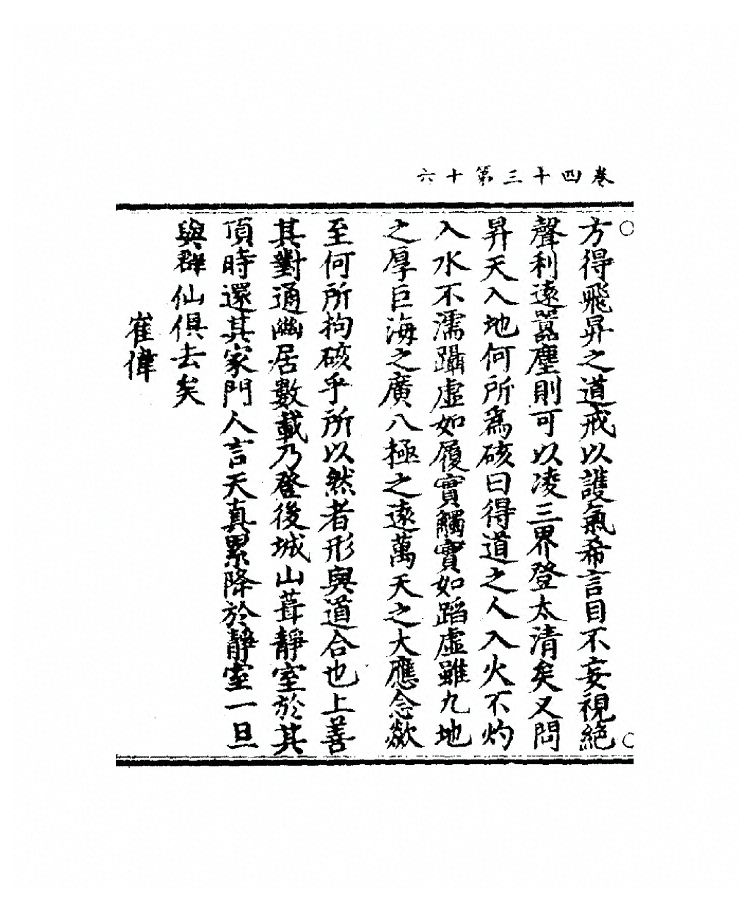 卷四十三第十六
方得飛昇之道戒以護氣希言目不妄視絕
聲利遠囂塵則可以凌三界登太清矣又問
昇天入地何所為硋曰得道之人入火不灼
入水不濡躡虛如履實觸實如蹈虛雖九地
之厚巨海之廣八極之遠萬天之大應念歘
至何所拘硋乎所以然者形與道合也上善
其對通幽居數載乃登後城山葺靜室於其
頂時還其家門人言天真累降於靜室一旦
與群仙俱去矣
崔偉